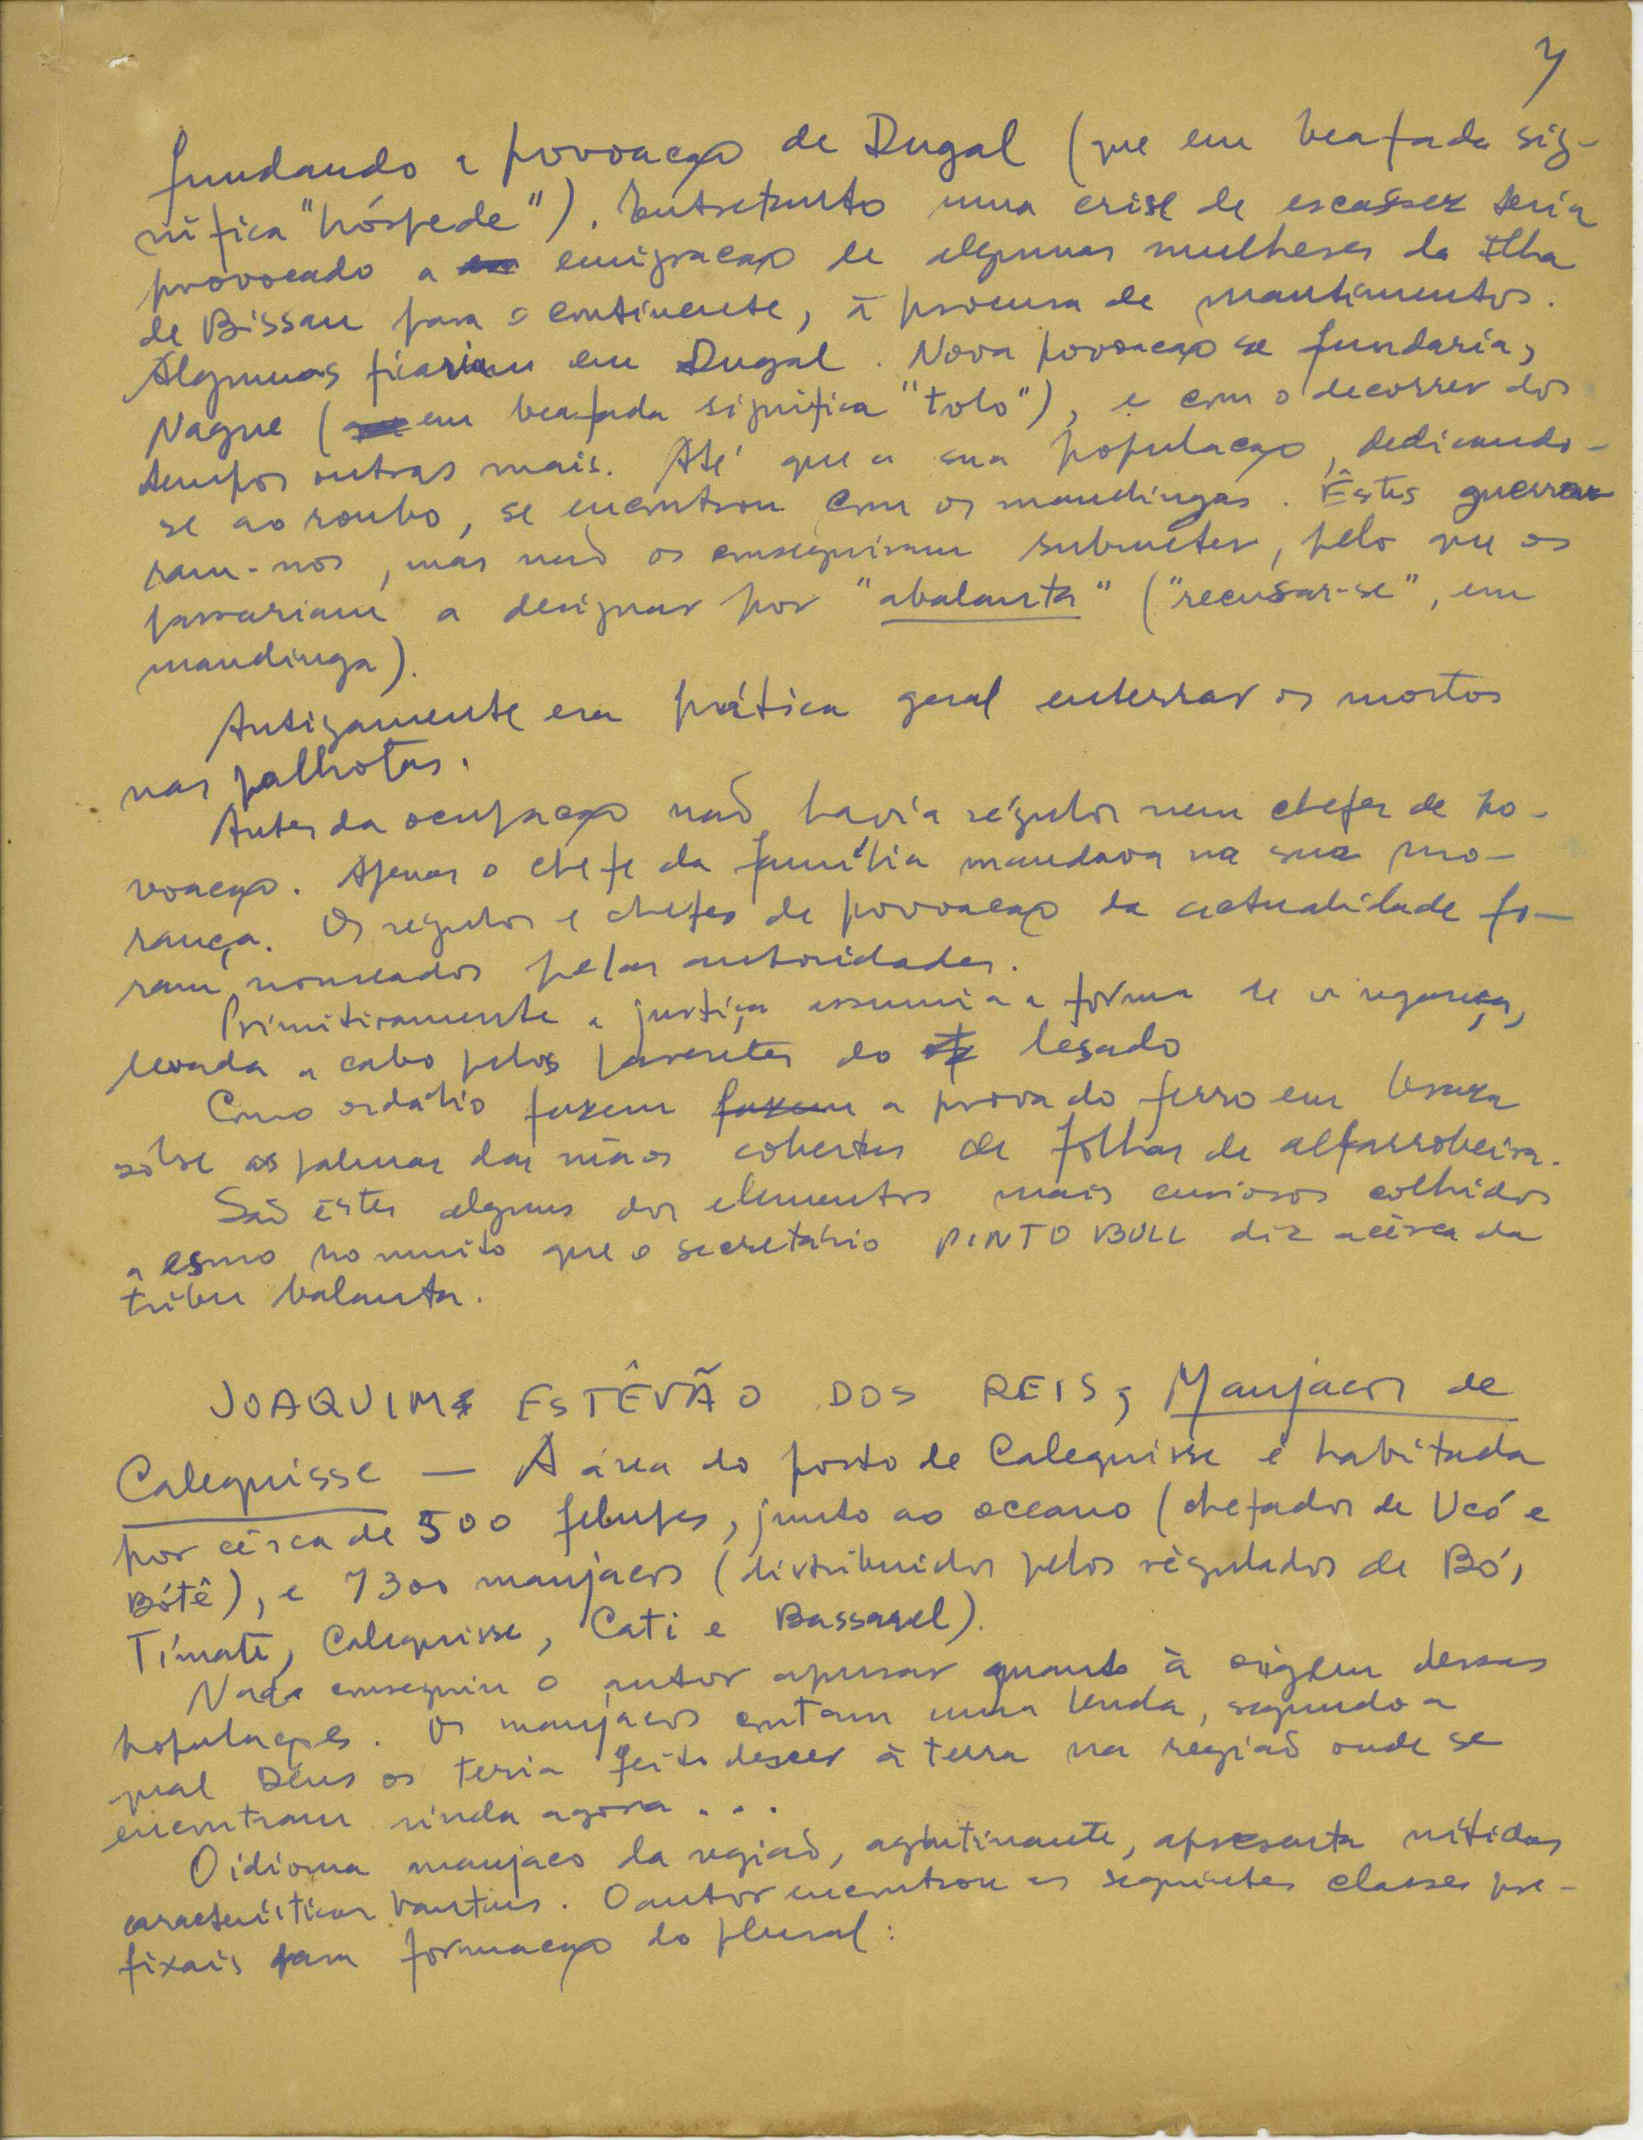 7
fundando a povoação de Dugal (que em beafada sig-
nifica "hóspede"). Entretanto uma crise de escassez teria
provocado a emigração de algumas mulheres da Ilha
de Bissau para o continente, à procura de mantimentos.
Algumas ficariam em Dugal. Nova povoação se fundaria,
Nague (em beafada significa "tolo"), e com o decorrer dos
tempos outras mais. Até que a sua população, dedicando-
se ao roubo, se encontrou com os mandingas. Êstes guerrea-
ram-nos, mas não os conseguiram submeter, pelo que os
passariam a designar por "abalanta" ("recusar-se", em
mandinga).
Antigamente era prática geral enterrar os mortos
nas palhotas.
Antes da ocupação não havia régulos nem chefes de po-
voação. Apenas o chefe da família mandava na sua mo-
rança. Os régulos e chefes de povoação da actualidade fo-
ram nomeados pelas autoridades.
Primitivamente a justiça assumia a forma de vingança,
levada a cabo pelos parentes do lesado
Como ordálio fazem fazem a prova do ferro em brasa
sôbre as palmas das mãos cobertas de folhas de alfarrobeira.
São êstes alguns dos elementos mais curiosos colhidos
a esmo no muito que o secretário PINTO BULL diz acêrca da
tribu balanta.
JOAQUIM ESTÊVÃO DOS REIS, Manjacos de
Calequisse — A área do posto de Calequisse é habitada
por cêrca de 500 felupes, junto ao oceano (chefados de Ucó e
Bótê), e 7300 manjacos (distribuidos pelos régulados de Bó,
Tímate, Calequisse, Cati e Bassarel).
Nada conseguiu o autor apurar quanto à origem dessas
populações. Os manjacos contam uma lenda, segundo a
qual Deus os teria feito descer à terra na região onde se
encontram ainda agora...
O idioma manjaco da região, aglutinante, apresenta nítidas
características bantus. O autor encontrou as seguintes classes pre-
fixais para formação do plural: